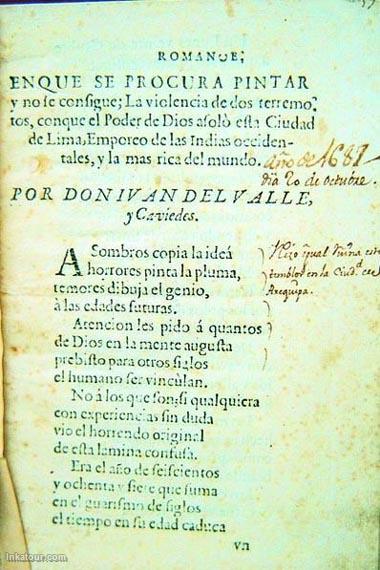 ROMANCE,
ENQUE SE PROCURA PINTAR
y no se consigue; La violencia de dos terremo-
tos, conque el Poder de Dios asolò esta Ciudad
de Lima, Emporeo de las Indias occiden-
tales, y la mas rica del mundo.
año de 1687
dia 20 de octubre.
POR DON IVAN DEL VALLE,
y Caviedes.
ASombros copia la ideá
horrores pinta la pluma,
temores dibuja el genio,
à las edades futuras.
Hizo igual ruina este
temblor en la Ciud.d de
Arequipa.
Atencion les pido à quantos
de Dios en la mente augusta
prebisto para otros siglos
el humano ser vincùlan.
No à los que fonsi qualquiera
con experiencias sin duda
vio el horrendo original
de esta lamina confusa.
Era el año de seiscientos
y ochenta y siete que suma
en el guarismo de siglos
el tiempo en su edad caduca
vn
Inkatour.com